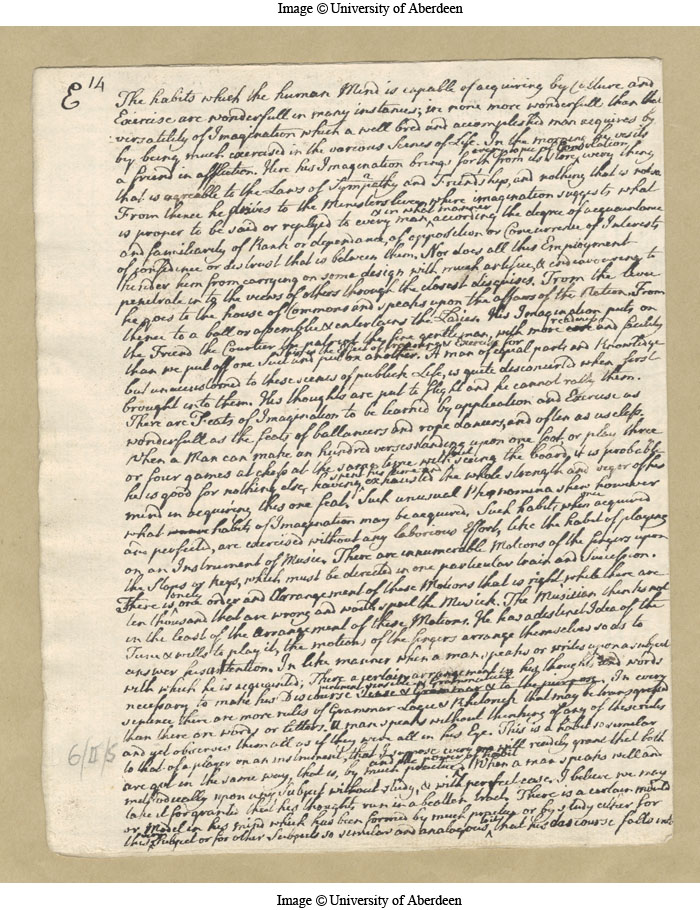 Image © University of Aberdeen
E 14
The habits which the human Mind is capable of acquiring by Culture and
Exercise are wonderfull in many instances; in none more wonderfull than that
versatility of Imagination which a well bred and accomplished man acquires by
by being much exercised in the various Scenes of Life. In the morning he visits
a friend in affliction. Here his Imagination brings forth from its Store, every thing
every topic of Consolation,
that is agreable to the Laws of Sympathy and Friendship, and nothing that is not so
From thence he drives to the Ministers levee, where imagination suggests what
is proper to be said or replyed to every man, according the degree of acquaintance
& in what manner
and familiarity of Rank or dependance, of opposition or Concurrence of Interests
of confidence or distrust that is between them. Nor does all this Employment
hinder him from carrying on some design with much artifice, & endeavouring to
penetrate in to the views of others through the closest disguises. From the levee
he goes to the house of Commons and speaks upon the affairs of the Nation. From
thence to a ball or assemblie & entertains the Ladies. His Imagination puts on
the Friend the Courtier the patriot the fine gentleman, with more ease and facility
than we put off one Suit and put on another. A man of equal parts and Knowledge
but unaccustomed to these scenes of publick Life, is quite disconcerted when first
brought into them. His thoughts are put to flight and he cannot rally them.
There are Feats of Imagination to be learned by application and Exercise as
wonderfull as the feats of ballancers and rope dancers, and often as useless.
When a Man can make an hundred verses standing upon one foot, or play three
or four games at chess at the same time without seeing the board, it is probable
he is good for nothing else, having exhausted the whole strength and vigor of his
mind in acquiring this one feat. Such unusual Phenomena shew however
what habits of Imagination may be acquired. Such habits when acquired
once
and perfected, are exercised without any laborious Effort, like the habit of playing
on an Instrument of Music. There are innumerable Motions of the fingers upon
the Stops or Keys, which must be directed in one particular train and Succession.
There is one order and Arrangement of these Motions that is right, while there are
only
ten thousand that are wrong and would spoil the Musick. The Musician thinks not
in the least of the Arrangement of these Motions. He has a distinct Idea of the
Tune & wills to play it, the motions of the fingers arrange themselves so as to
answer his intention. In like manner when a man speaks or writes upon a subject
with which he is acquainted; There a certain arrangement in his thoughts and words
necessary to make his Discourse
pertinent sensible & Grammatical
In every
sentence there are more rules of Grammar Logic & Rhetorick that may be transgressed
than there are words or letters. A man speaks without thinking of any of these rules
and yet observes them all as if they were all in his Eye. This is a habit so similar
to that of a player on an instrument, that I suppose every man will readily grant that both
are got in the same way, that is, by much practice
and the power of habit
When a man speaks well and
methodically upon any Subject without study, & with perfect ease. I believe we may
take it for granted that his thoughts run in a beaten track. There is a certain mould
or Model in his mind which has been formed by much practice or by study either for
this Subject or for other Subjects so similar and analogous, that his discourse falls into
6/II/5
Image © University of Aberdeen